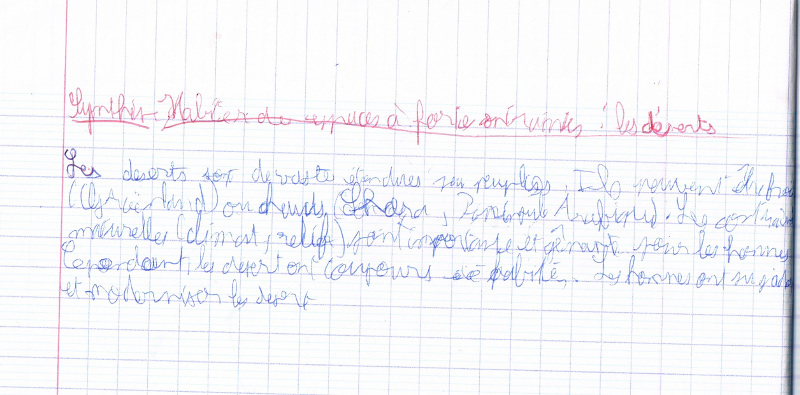 Synthès - Habiter de espaces à forte contraintes : les déserts
Les deserts sont de vaste étendues peu peuplées. Ils peuvent être froi
( ) ou chauds ( , Péninsule Arabique). Les contrain
naturelles (climat, relief) sont importante et pour les hommes
Cependant, les desert ont toujours été habité. Les hommes ont su s'ada
et moderniser les desert